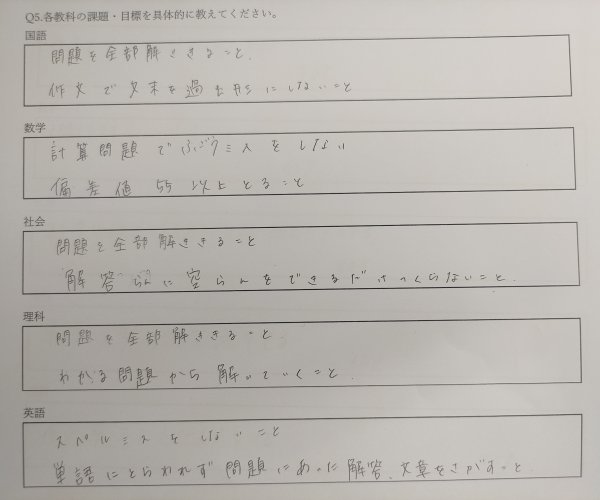 Q5.各教科の課題・目標を具体的に教えてください。
国語
問題を全部解ききること.
作文で文末を過去形にしないこと
数学
計算問題でふごうミスをしない
偏差値55以上とること
社会
問題を全部解ききること
解答らんに空らんをできるだけつくらないこと.
理科
問題を全部解ききること.
わかる問題から解いていくこと.
英語
スペルミスをしないこと
単語にとらわれず問題にあった解答、文章をさがすこと